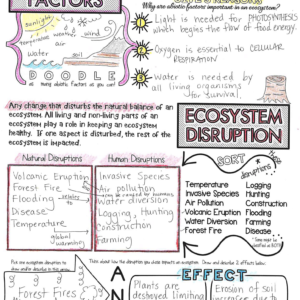 FACTORS
Why are abiotic factors important in an ecosystem?
sunlight
Temperature
wind
weather
air
Water
soil
DOODLE
as many abiotic factors as you can!
Light is needed for PHOTOSYNTHESIS
which begins the flow of food energy.
Oxygen is essential to CELLULAR
RESPIRATION
Water is needed by
all living organisms
for survival
Any change that disturbs the natural balance of an
ecosystem. All living and non-living parts of an
ecosystem play a role in keeping an ecosystem
healthy. If one aspect is disturbed, the rest of the
ecosystem is impacted.
ECOSYSTEM
DISRUPTION
Natural Disruptions
Human Disruptions
Volcanic Eruption
Forest Fire
Flooding
Disease
Temperature
global
warming
Invasive Species
Air pollution
Water diversion
Logging, Hunting
Construction
Farming
SORT
disruptions
Temperature
Invasive Species
Air Pollution
Volcanic Eruption
Water Diversion
Forest Fire
Logging
Hunting
Construction
Flooding
Farming
Disease
Pick one ecosystem disruption to
draw and/or describe in this area.
Think about how the disruption you chose impacts an ecosystem. Draw and describe 2 effects below.
EFFECT
Forest Fires
A
N
Plants are
destroyed limiting
Erosion of soil